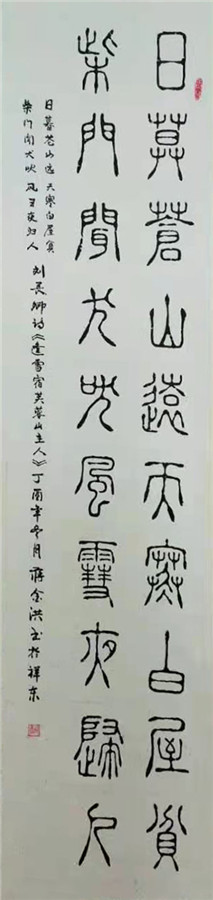 日莫蒼山遠天寒白屋貧
柴門聞犬吠風雪夜歸人
日暮苍山远 天寒白屋贫
柴门闻犬吠 风雪夜归人 刘长卿诗《逢雪宿芙蓉山主人》丁酉年冬月 蒋金洪书于祥东